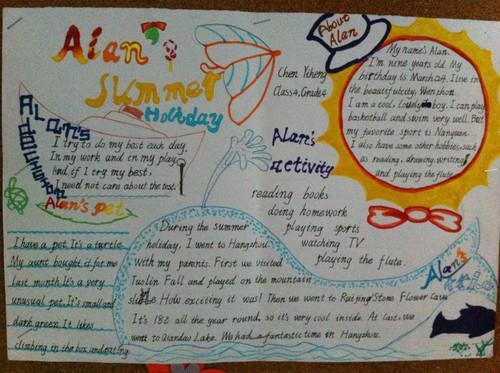 Alan's
Summer
Holiday
About
Alan
Chen Yiheng
Class4, Grade4
My name's Alan.
I'm nine years old. My
birthday is March24. I live in
the beautiful city, Wenzhou.
I am a cool boy. I can play
basketball and swim very well. But
my favorite sport is Nanquan.
I also have some other hobbies, such
as reading, drawing, writing
and playing the flute.
Alan's
I try to do my best each day,
In my work and in my play,
And if I try my best,
I need not care about the rest.
Alan's
activity
reading books
doing homework
playing sports
watching TV
playing the flute.
Alan's pet
I have a pet. It's a turtle.
My aunt bought it for me
last month. It's a very
unusual pet. It's small and
dark green. It likes
climbing in the box and eating.
Alan's
During the summer
holiday, I went to Hangzhou
with my parents. First we visited
Fall and played on the mountain
slide. How exciting it was! Then we went to Stone Flower Cave
It's 18 all the year round, so it's very cool inside. At last, we
went to Qiandao Lake. We had a fantastic time in Hangzhou.